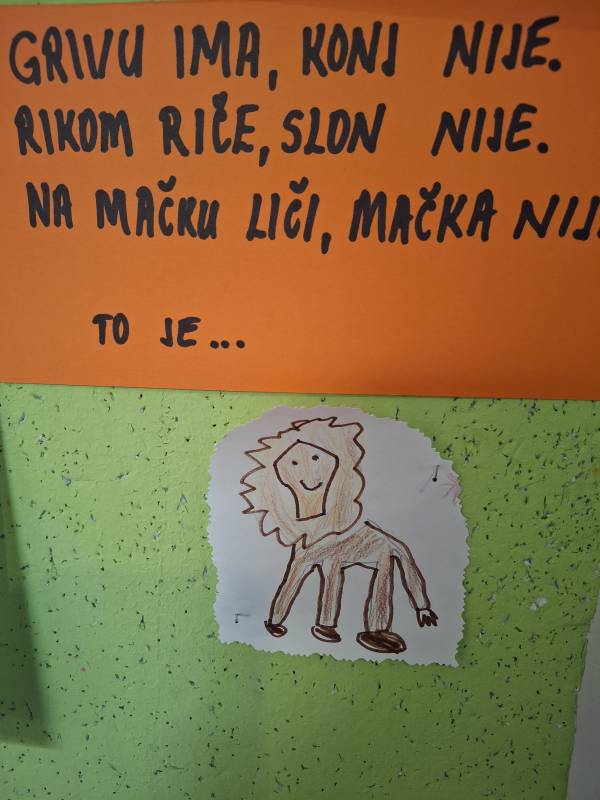 GRIVU IMA, KONJ NIJE.
RIKOM RIČE, SLON NIJE.
NA MAČKU LIČI, MAČKA NIJ
TO JE...